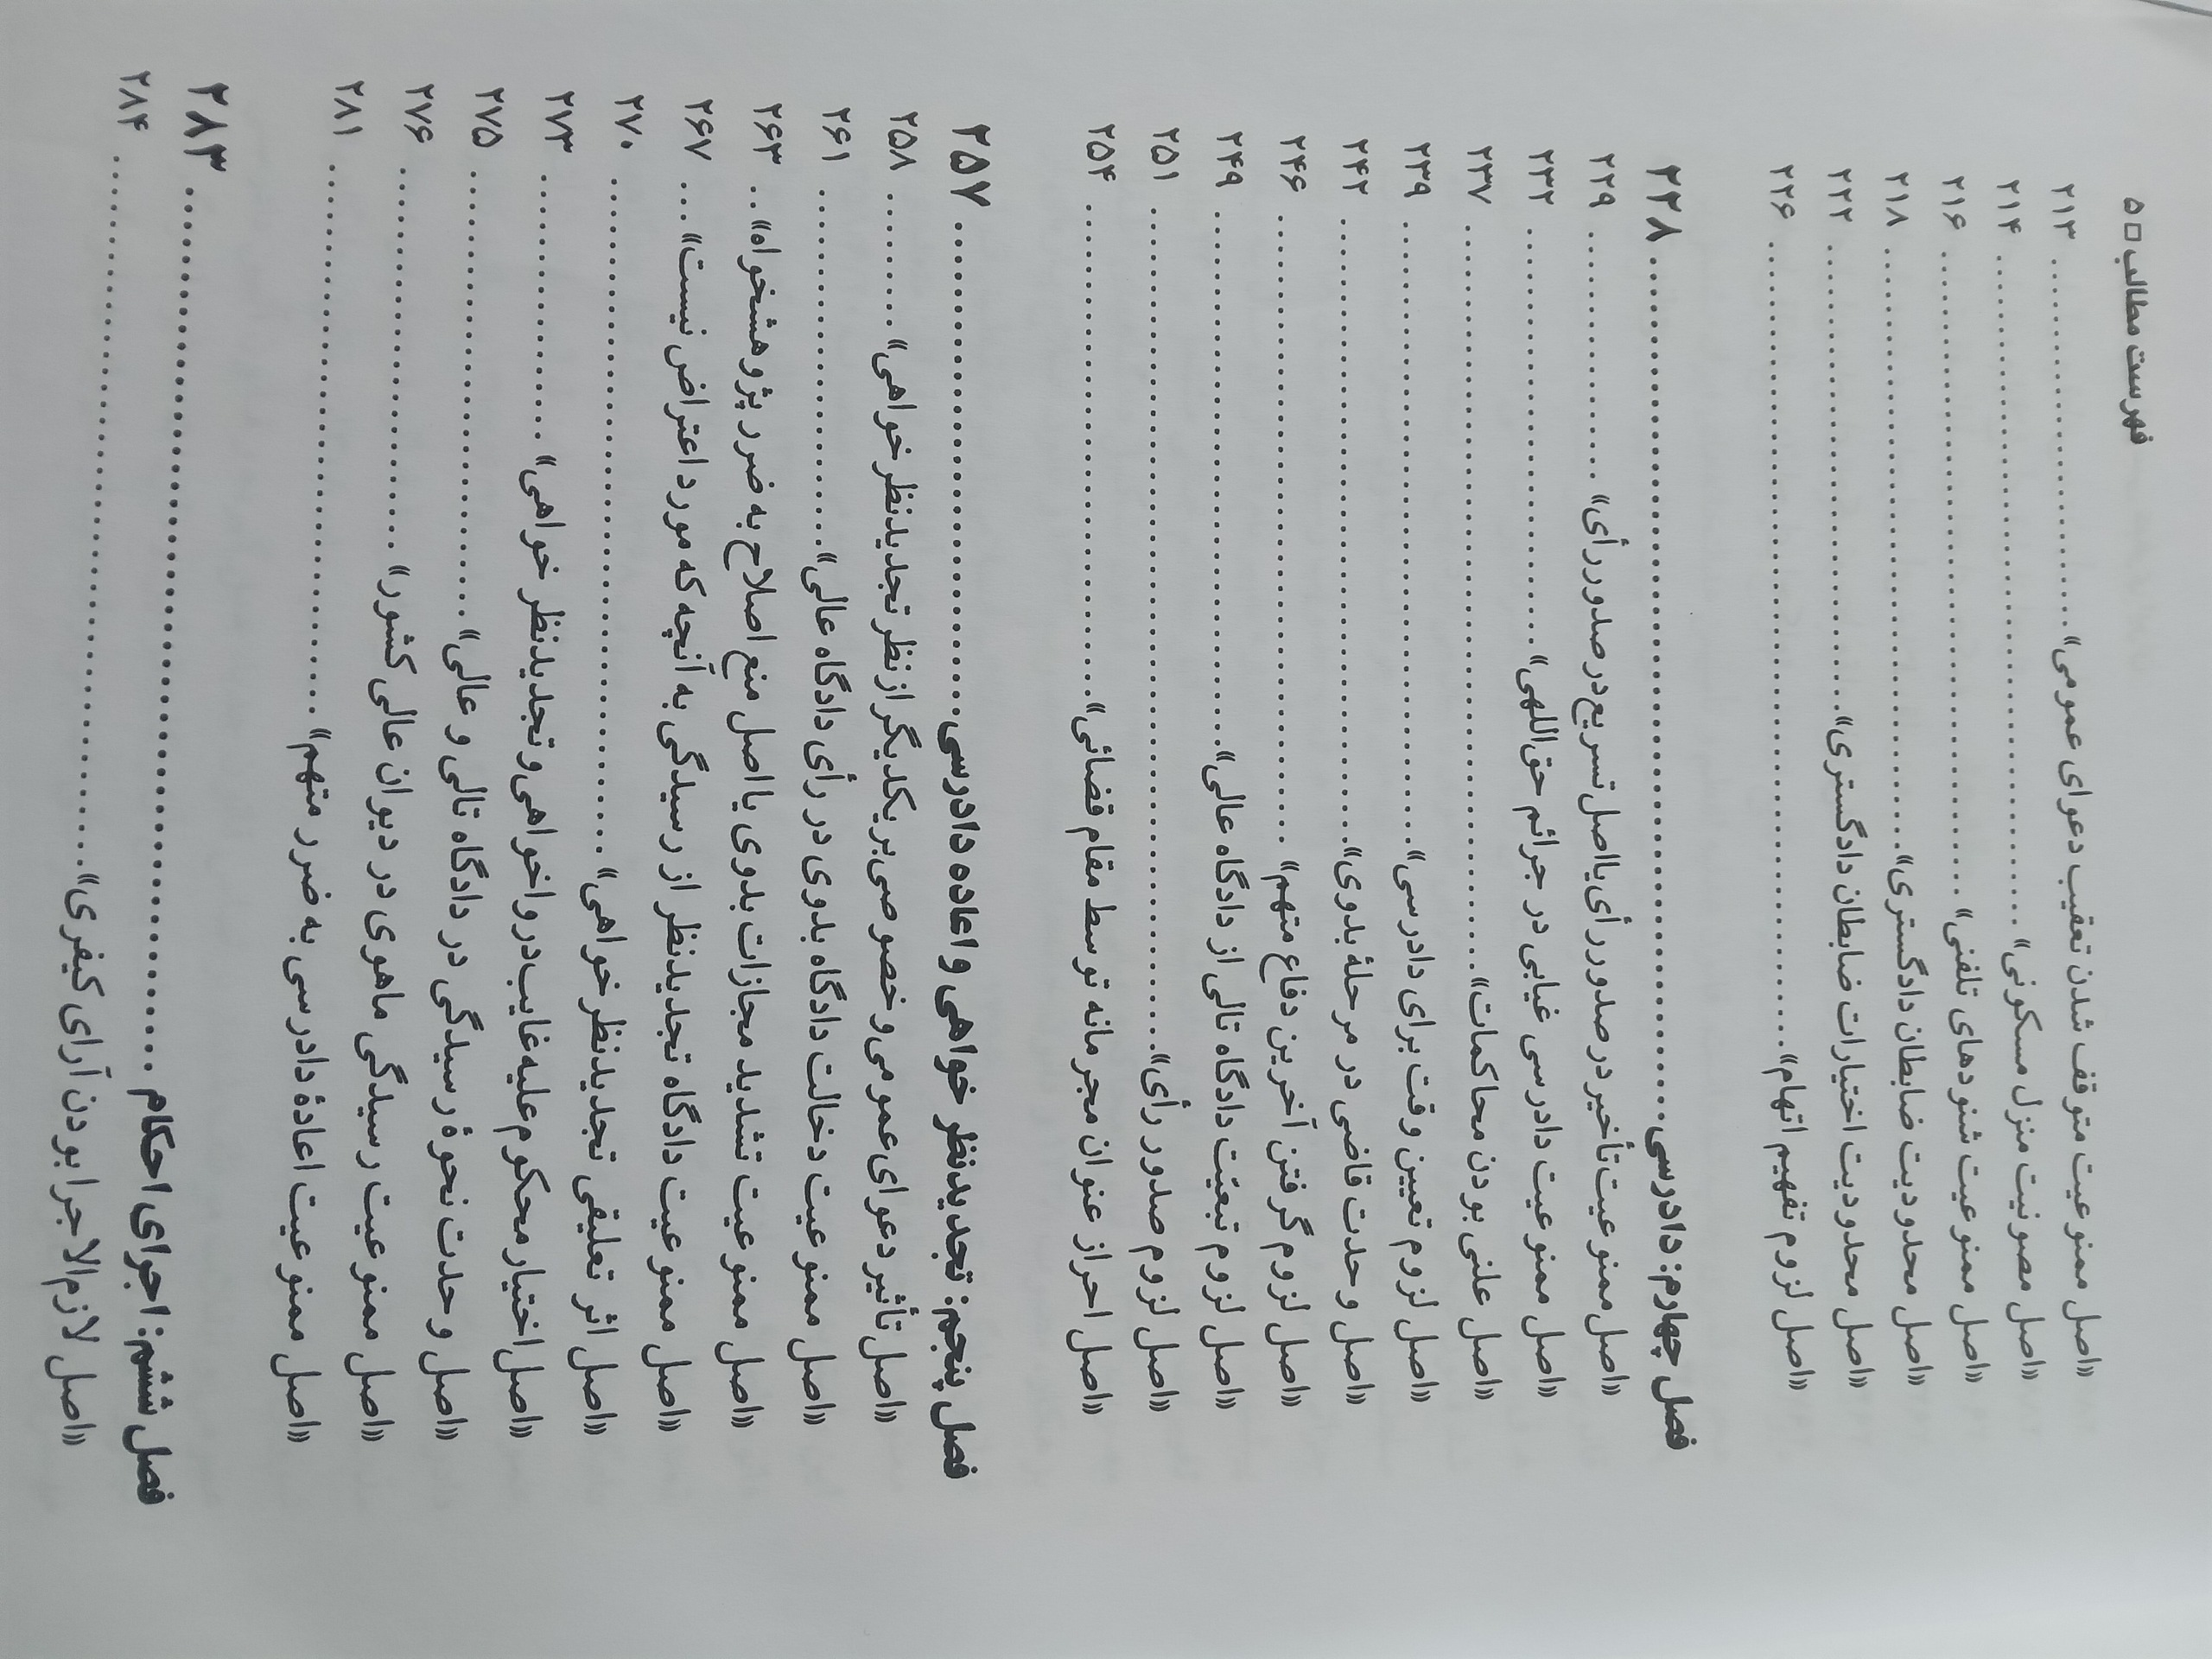 فهرست مطالب □ ۵
«اصل ممنوعیت متوقف شدن تعقیب دعوای عمومی» ........ ۲۱۳
«اصل مصونیت منزل مسکونی» ........ ۲۱۴
«اصل ممنوعیت شنودهای تلفنی» ........ ۲۱۶
«اصل محدودیت ضابطان دادگستری» ........ ۲۱۸
«اصل محدودیت اختیارات ضابطان دادگستری» ........ ۲۲۲
«اصل لزوم تفهیم اتهام» ........ ۲۲۶
فصل چهارم: دادرسی ........ ۲۲۸
«اصل ممنوعیت تأخیر در صدور رأی یا اصل تسریع در صدور رأی» ........ ۲۲۹
«اصل ممنوعیت دادرسی غیابی در جرائم حق‌اللهی» ........ ۲۳۲
«اصل علنی بودن محاکمات» ........ ۲۳۷
«اصل لزوم تعیین وقت برای دادرسی» ........ ۲۳۹
«اصل وحدت قاضی در مرحلهٔ بدوی» ........ ۲۴۲
«اصل لزوم گرفتن آخرین دفاع متهم» ........ ۲۴۶
«اصل لزوم تبعیّت دادگاه تالی از دادگاه عالی» ........ ۲۴۹
«اصل لزوم صدور رأی» ........ ۲۵۱
«اصل احراز عنوان مجرمانه توسط مقام قضائی» ........ ۲۵۴
فصل پنجم: تجدیدنظر خواهی و اعاده دادرسی ........ ۲۵۷
«اصل تأثیر دعوای عمومی و خصوصی بر یکدیگر از نظر تجدیدنظرخواهی» ........ ۲۵۸
«اصل ممنوعیت دخالت دادگاه بدوی در رأی دادگاه عالی» ........ ۲۶۱
«اصل ممنوعیت تشدید مجازات بدوی یا اصل منع اصلاح به ضرر پژوهشخواه» .. ۲۶۳
«اصل ممنوعیت دادگاه تجدیدنظر از رسیدگی به آنچه که مورد اعتراض نیست» ... ۲۶۷
«اصل اثر تعلیقی تجدیدنظرخواهی» ........ ۲۷۰
«اصل اختیار محکوم‌علیه غایب در واخواهی و تجدیدنظر خواهی» ........ ۲۷۳
«اصل وحدت نحوهٔ رسیدگی در دادگاه تالی و عالی» ........ ۲۷۵
«اصل ممنوعیت رسیدگی ماهوی در دیوان عالی کشور» ........ ۲۷۶
«اصل ممنوعیت اعادهٔ دادرسی به ضرر متهم» ........ ۲۸۱
فصل ششم: اجرای احکام ........ ۲۸۳
«اصل لازم‌الاجرا بودن آرای کیفری» ........ ۲۸۴